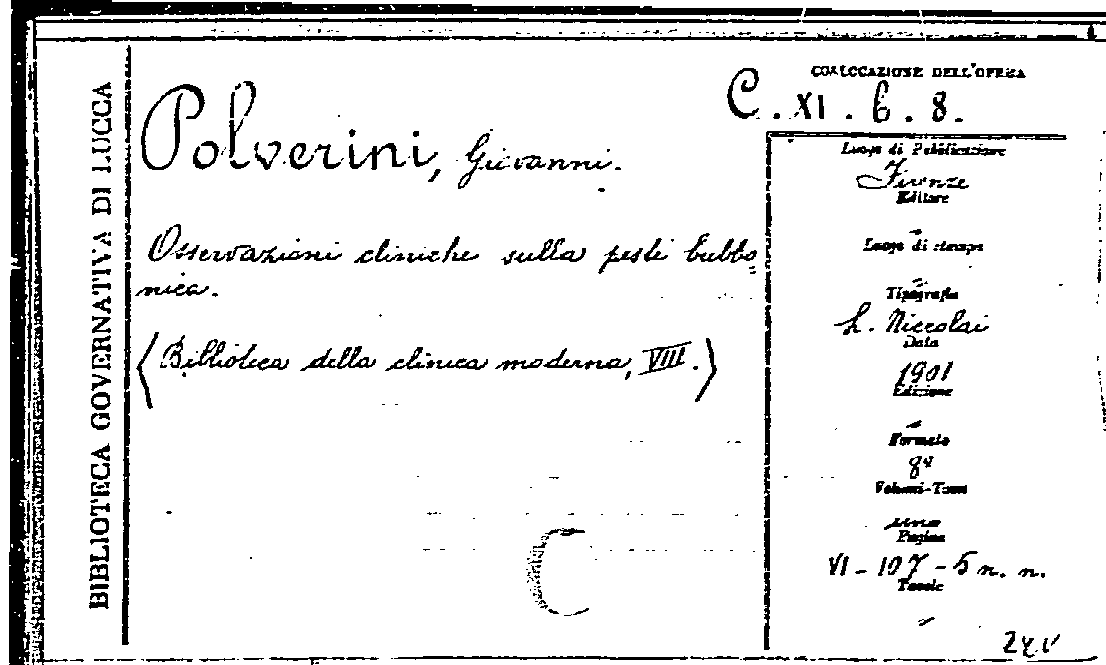 BIBLIOTECA GOVERNATIVA DI LUCCA
Polverini, Giovanni.
Osservazioni cliniche sulla peste bubbo=
nica.
(Biblioteca della clinica moderna, VIII.)
C
COLLOCAZIONE DELL'OPERA
C. XI. 6. 8.
Luogo di Pubblicazione
Firenze
Editore
Luogo di stampa
Tipografia
L. Niccolai
Data
1901
Edizione
Formato
8º
Volumi-Tomi
uno
Pagine
VI-107-5 n. n.
Tavole